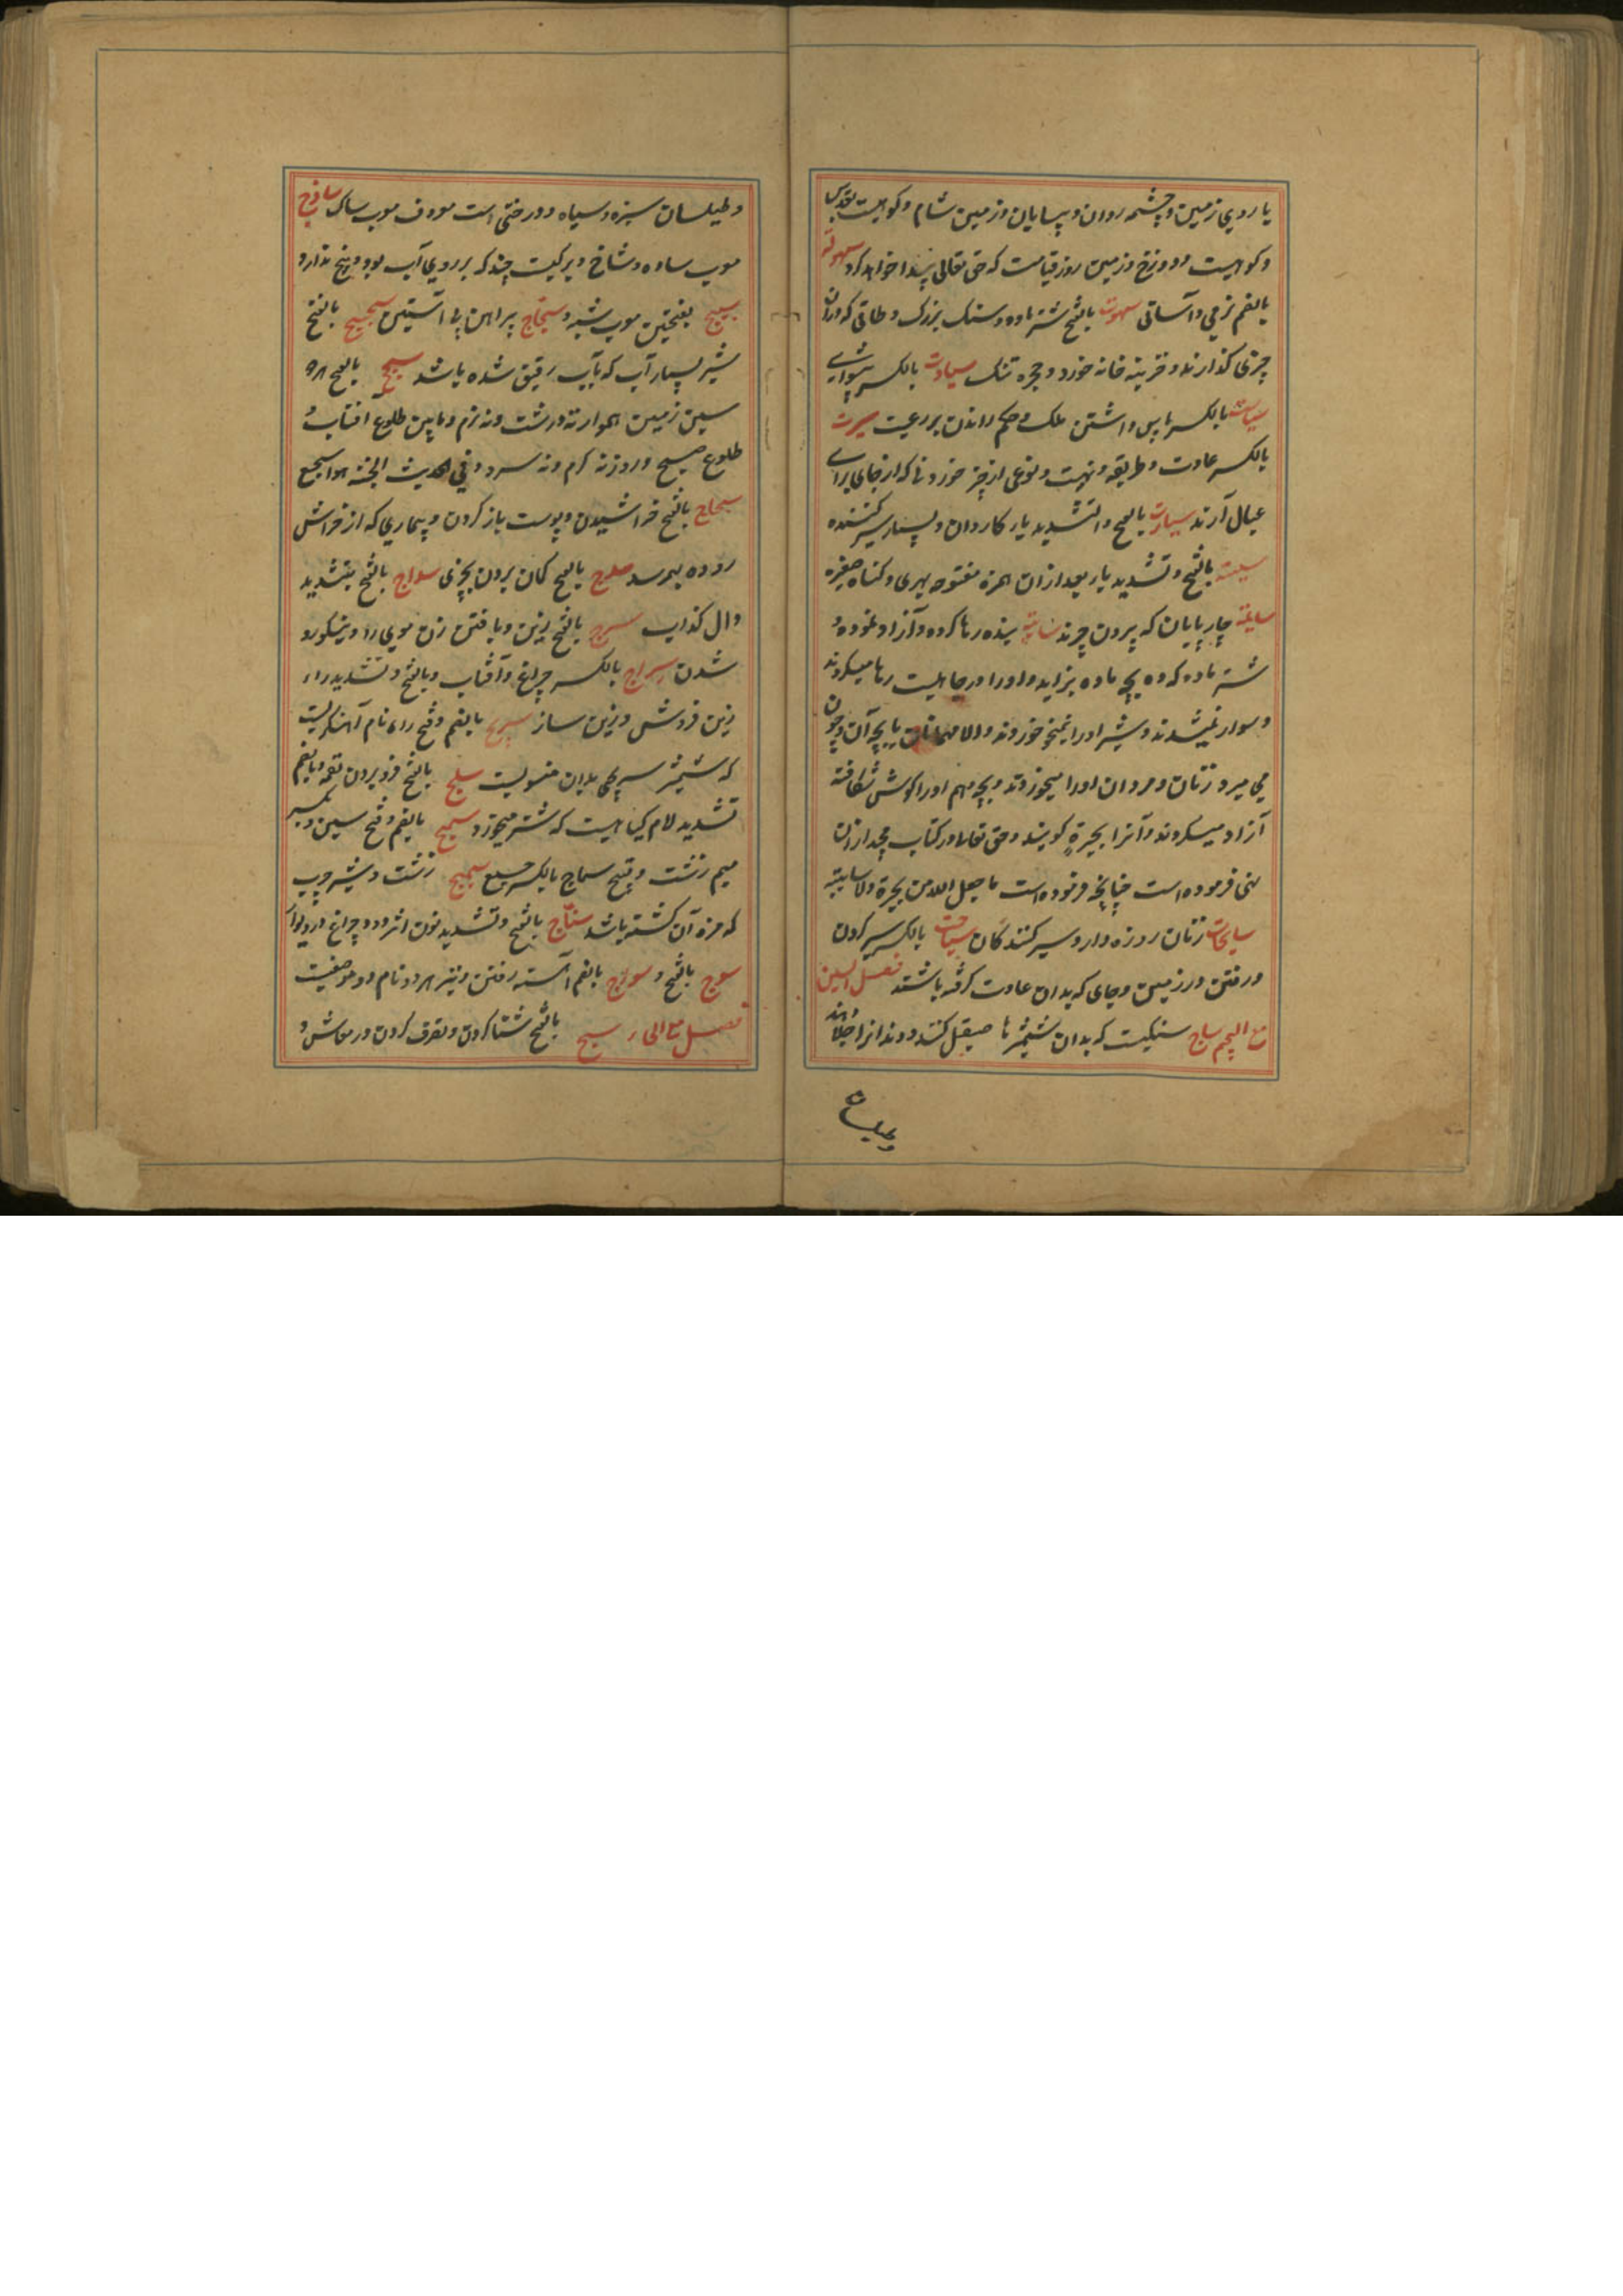 یا روی زمین و چشمه روان و بیابان و زمین شام و کوهیست بقدس
و کوهیست و دوزخ و زمین روز قیامت که حق تعالی پیدا خواهد کرد سهولة
بالضم نرمی و آسانی سهوت بالفتح شتر ماده و سنک بزرک و طاقی که دران
چیزی کذارند و خزینه خانه خورد و حجره تنک سیادت بالکسر پیشوایی
سیاست بالکسر پاس داشتن ملک و حکم راندن بر رعیت سیرت
بالکسر عادت و طریقه و هیئت و نوعی از چیز خوردنی که از جای برای
عیال آرند سیارت بالفتح و التشدید یا کاروان و بسیار سیر کننده
سیئة بالفتح و تشدید یا بعد ازان همزه مفتوحه بدی و کناه صغیره
سایمة چارپایان که بیرون چرند سایبة بنده رها کرده و آزاد نموده و
شتر ماده که ده بچه ماده بزاید و او را در جاهلیت رها میکردند
و سوار نمیشدند و شیر او را نمیخوردند والا مهمانان یا بچه آن و چون
می میرد زنان و مردان او را میخوردند و بچه نهم او را کوش شکافته
آزاد میکردند و آنرا بحیرة کویند و حق تعالی در کتاب مجید ازان
نهی فرموده است چنانچه فرموده است ما جعل الله من بحیرة ولا سایبة
سایحات زنان روزه دار و سیر کنندکان سیاحت بالکسر سیر کردن
و رفتن در زمین و جای که بدان عادت کرفته باشند فصل السین
مع الجیم ساج سنکیست که بدان شمشیر را صیقل کنند و دندانرا جلا دهند
و طیلسان سبز و سیاه و درختی است معروف معرب ساک ساذج
معرب ساده و شاخ و برکیست چند که بر روی آب بود و بیخ ندارد
سبج بفتحتین معرب شبه و پیراهن بی آستین بالفتح
شیر بسیار آب که بآب رقیق شده باشد بالفتح هر دو
سین زمین هموار نه درشت و نه نرم و مابین طلوع افتاب و
طلوع صبح و روز نه کرم و نه سرد و فی الحدیث الجنة هوا سجسج
سحاج بالفتح خراشیدن و پوست باز کردن و بیماری که از خراش
روده بهم رسد بالفتح کمان بردن بچیزی سداج بالفتح بتشدید
دال کذاب سرج بالفتح زین و بافتن زن موی را و نیکو رو
شدن سراج بالکسر چراغ و آفتاب و بالفتح و تشدید راء
زین فروش و زین ساز سریج بالضم و فتح راء نام آهنکریست
که شمشیر سریجی بدان منسوبست سلج بالفتح فرو بردن لقمه و بالضم
تشدید لام کیاهیست که شتر میخورد سمج بالضم و فتح سین و بکسر
میم زشت و قبیح سماج بالکسر جمع سمیج زشت و شیر چرب
که مزه آن کشته باشد سناج بالفتح و تشدید نون اثر دود چراغ در دیوار
سوج بالفتح و سواج بالضم آهسته رفتن و نیز هر دو نام دو موضعیست
فصل مع الحاء سبح بالفتح شنا کردن و تصرف کردن در معاش و